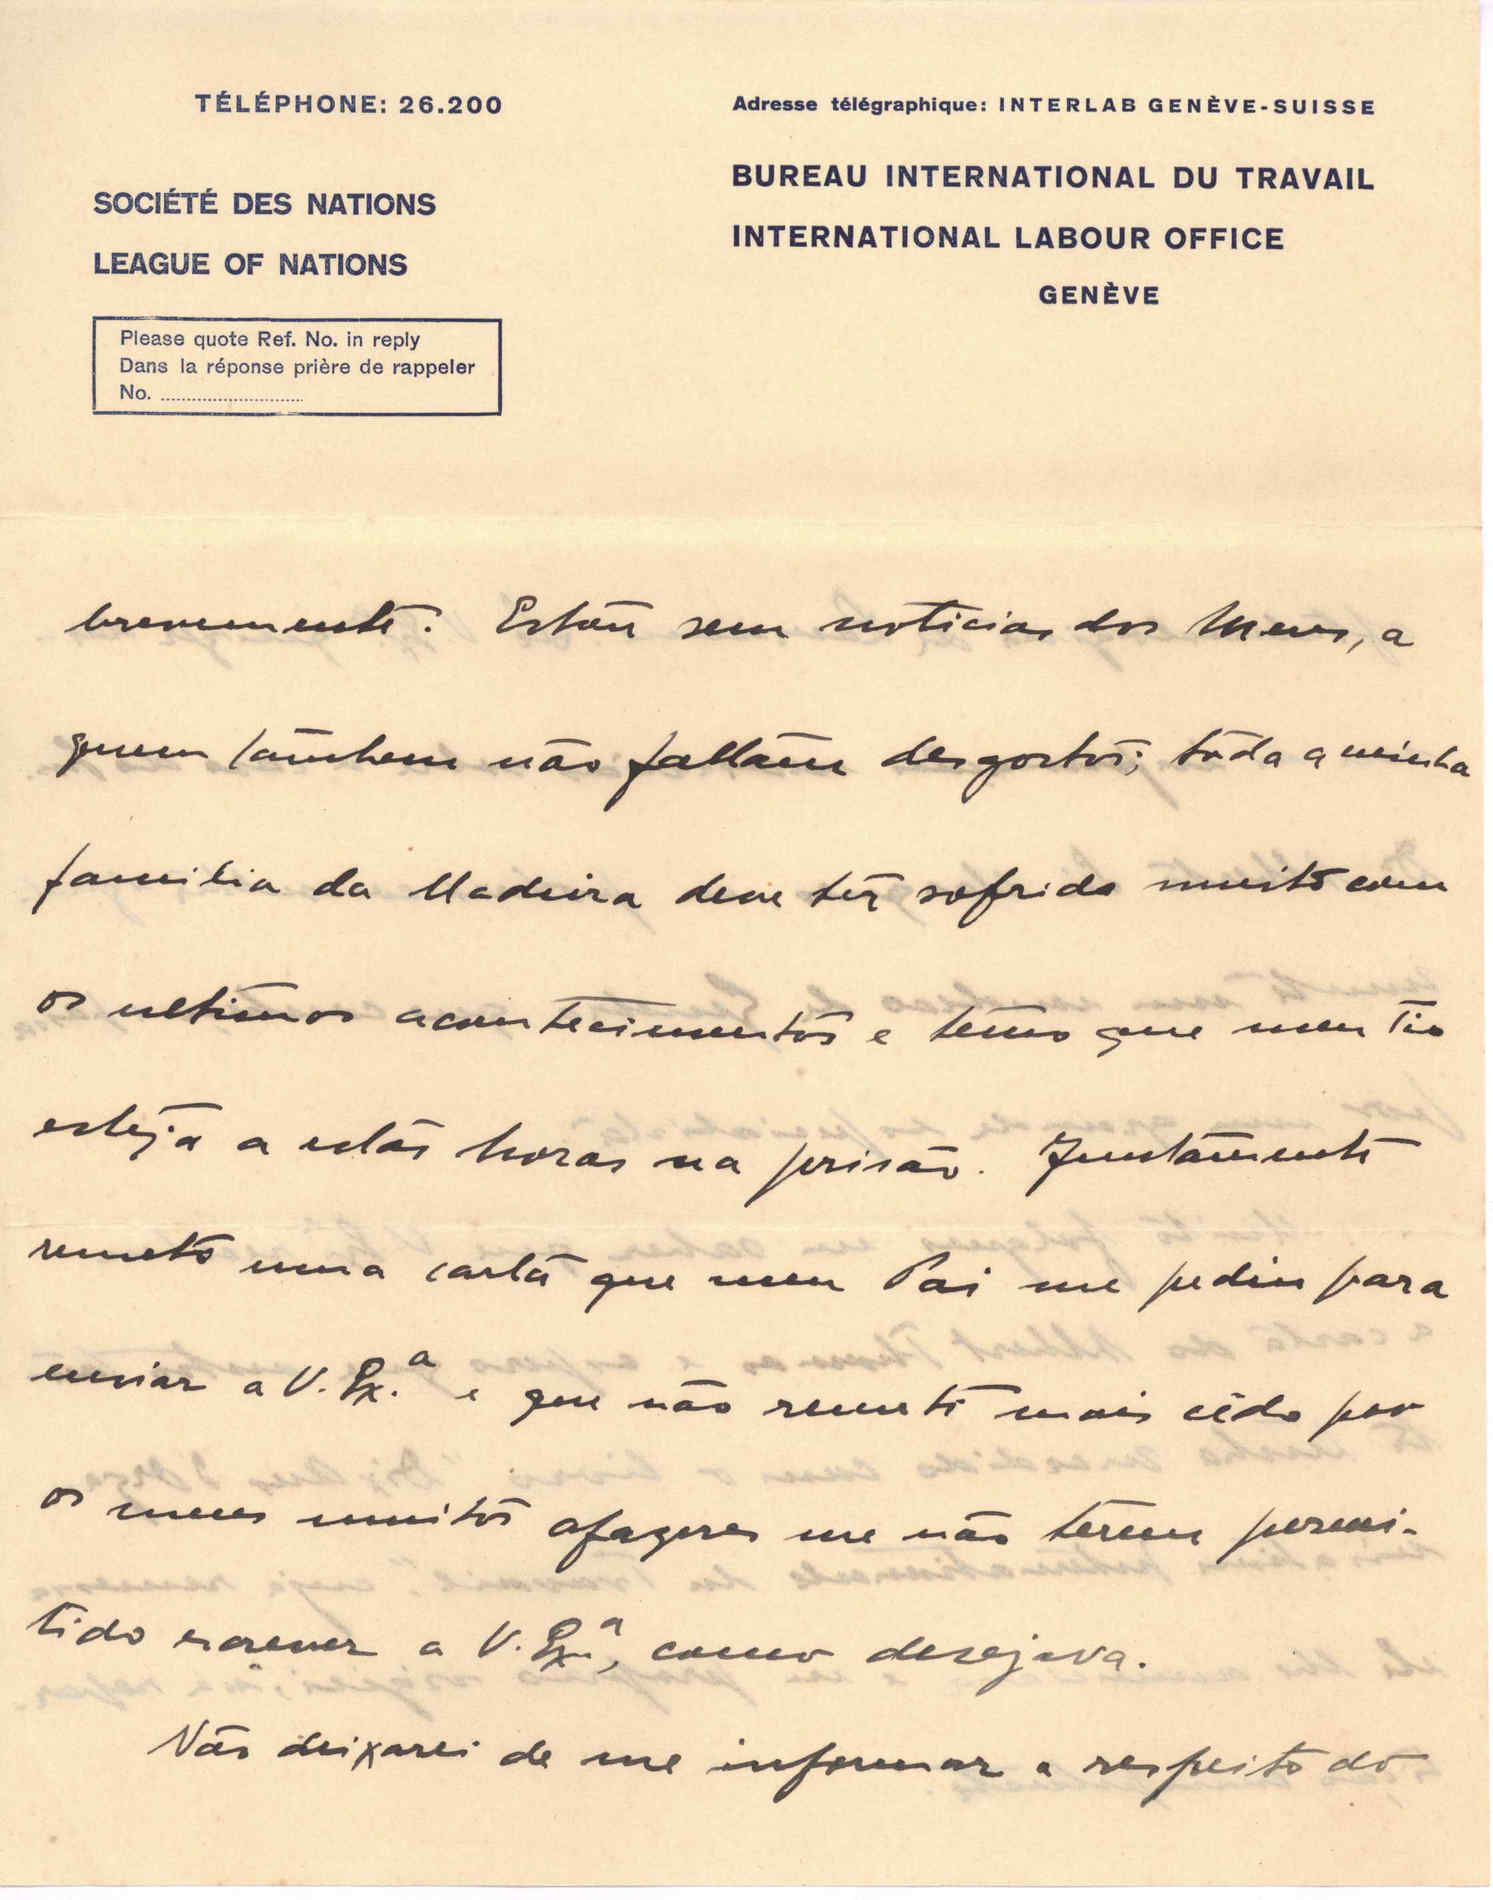 TÉLÉPHONE: 26.200
Adresse télégraphique: INTERLAB GENÈVE-SUISSE
SOCIÉTÉ DES NATIONS
LEAGUE OF NATIONS
BUREAU INTERNATIONAL DU TRAVAIL
INTERNATIONAL LABOUR OFFICE
GENÈVE
Please quote Ref. No. in reply
Dans la réponse prière de rappeler
No. ............................
brevemente. Estou sem noticias dos meus, a
quem tambem não faltam desgostos; toda a minha
familia da Madeira deve ter sofrido muito com
os ultimos acontecimentos e temo que meu Tio
esteja a estas horas na prisão. Juntamente
remeto uma carta que meu Pai me pediu para
enviar a V. Ex.ª e que não remeti mais cêdo por
os meus muitos afazeres me não terem permi-
tido escrever a V. Ex.ª, como desejava.
Não deixarei de me informar a respeito do